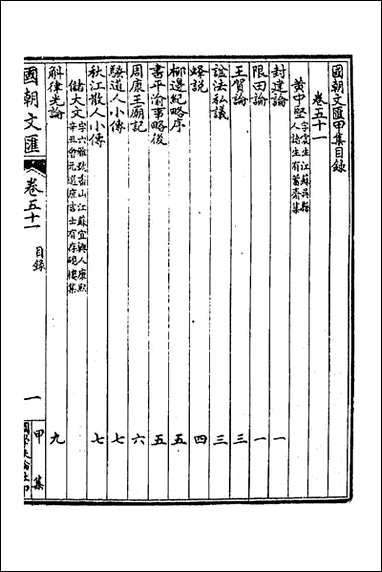 國朝文匯甲集目錄
卷五十一
黃中堅 字震生江蘇吳縣人諸生有蓄齋集
封建論 一
限田論 一
王賀論 三
諡法私議 三
蟋說 四
柳邊紀略序 五
書平渝事略後 五
周康王廟記 六
駿道人小傳 七
秋江散人小傳 七
儲大文 字六雅號畫山江蘇宜興人康熙辛丑會元選庶吉士有存硯樓集
斛律光論 九
國朝文匯 卷五十一 目錄 一 甲集